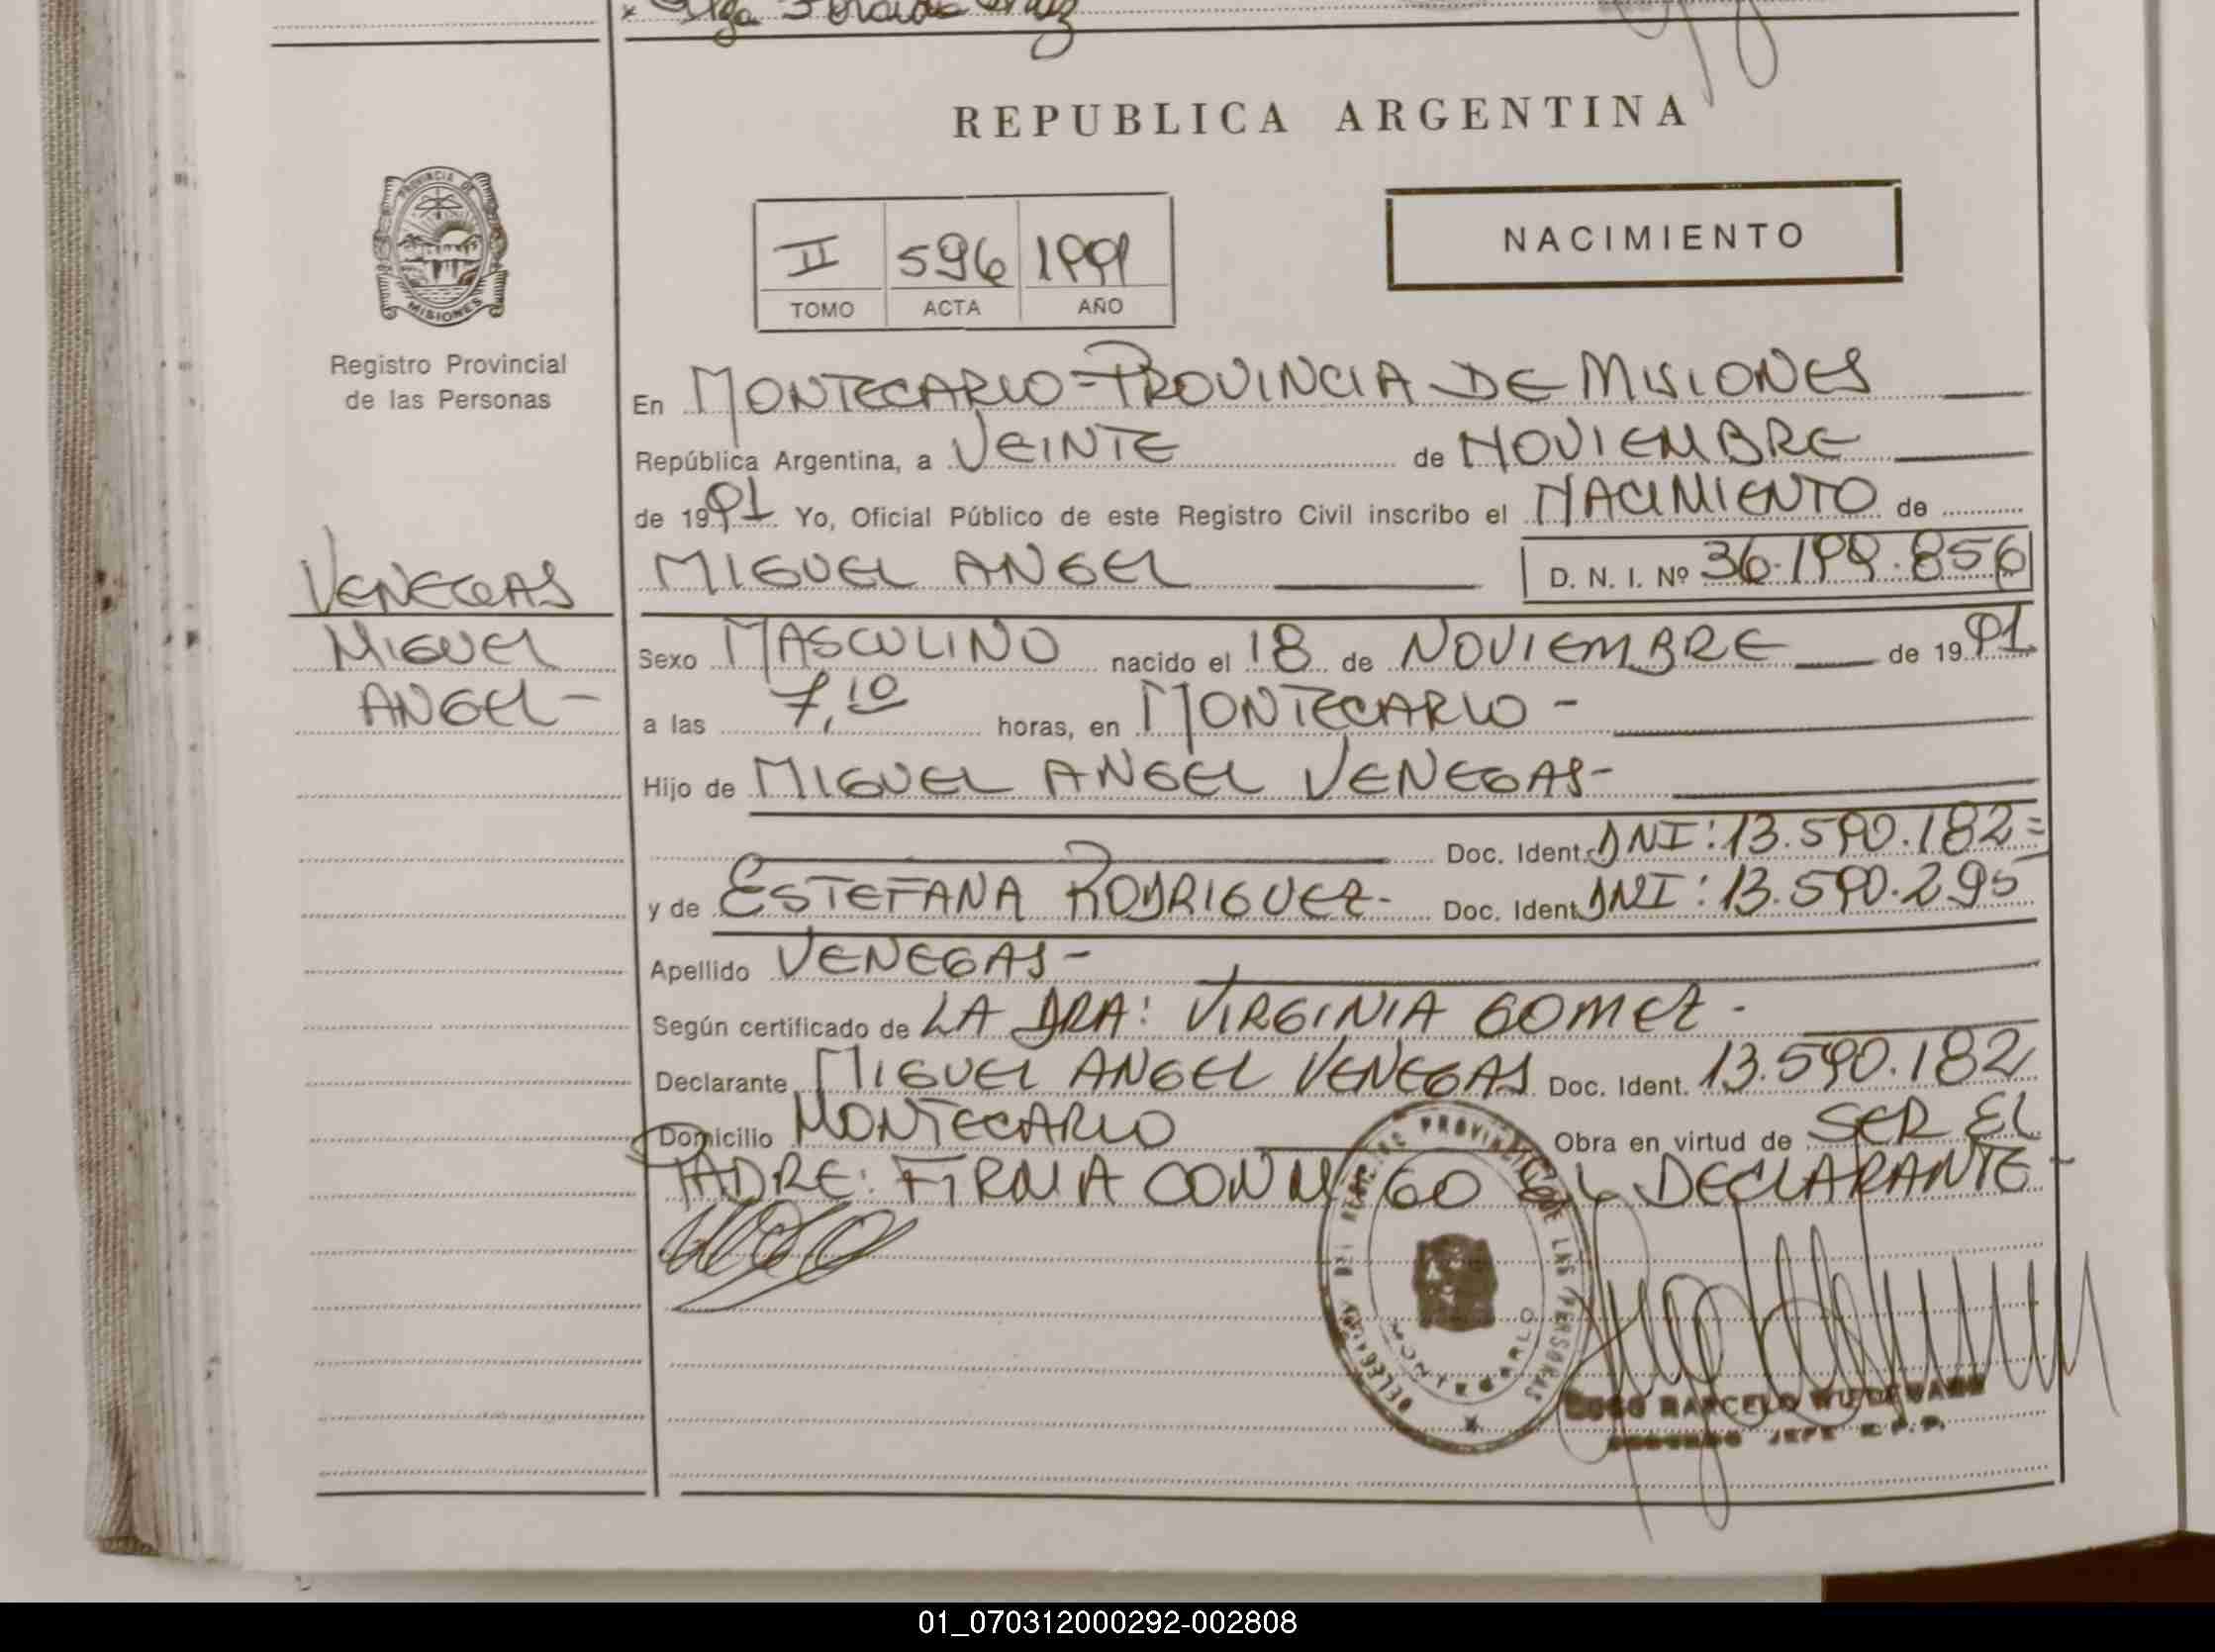 REPUBLICA ARGENTINA
PROVINCIA DE
MISIONES
Registro Provincial
de las Personas
NACIMIENTO
II 596 1991
TOMO ACTA AÑO
En MONTECARLO-PROVINCIA DE MISIONES
República Argentina, a VEINTE de NOVIEMBRE
de 1991 Yo, Oficial Público de este Registro Civil inscribo el NACIMIENTO de
MIGUEL ANGEL D. N. I. Nº 36.199.856
VENEGAS
MIGUEL
ANGEL-
Sexo MASCULINO nacido el 18 de NOVIEMBRE de 1991
a las 7,10 horas, en MONTECARLO -
Hijo de MIGUEL ANGEL VENEGAS-
Doc. Ident. DNI: 13.590.182=
y de ESTEFANA RODRIGUEZ- Doc. Ident. DNI: 13.590.295
Apellido VENEGAS-
Según certificado de LA DRA: VIRGINIA GOMEZ -
Declarante MIGUEL ANGEL VENEGAS Doc. Ident. 13.590.182
Domicilio MONTECARLO Obra en virtud de SER EL
PADRE: FIRMA CONMIGO EL DECLARANTE-
DELEGACION DEL REGISTRO PROVINCIAL DE LAS PERSONAS
MONTECARLO
MARCELO
JEFE R.P.P.
01_070312000292-002808